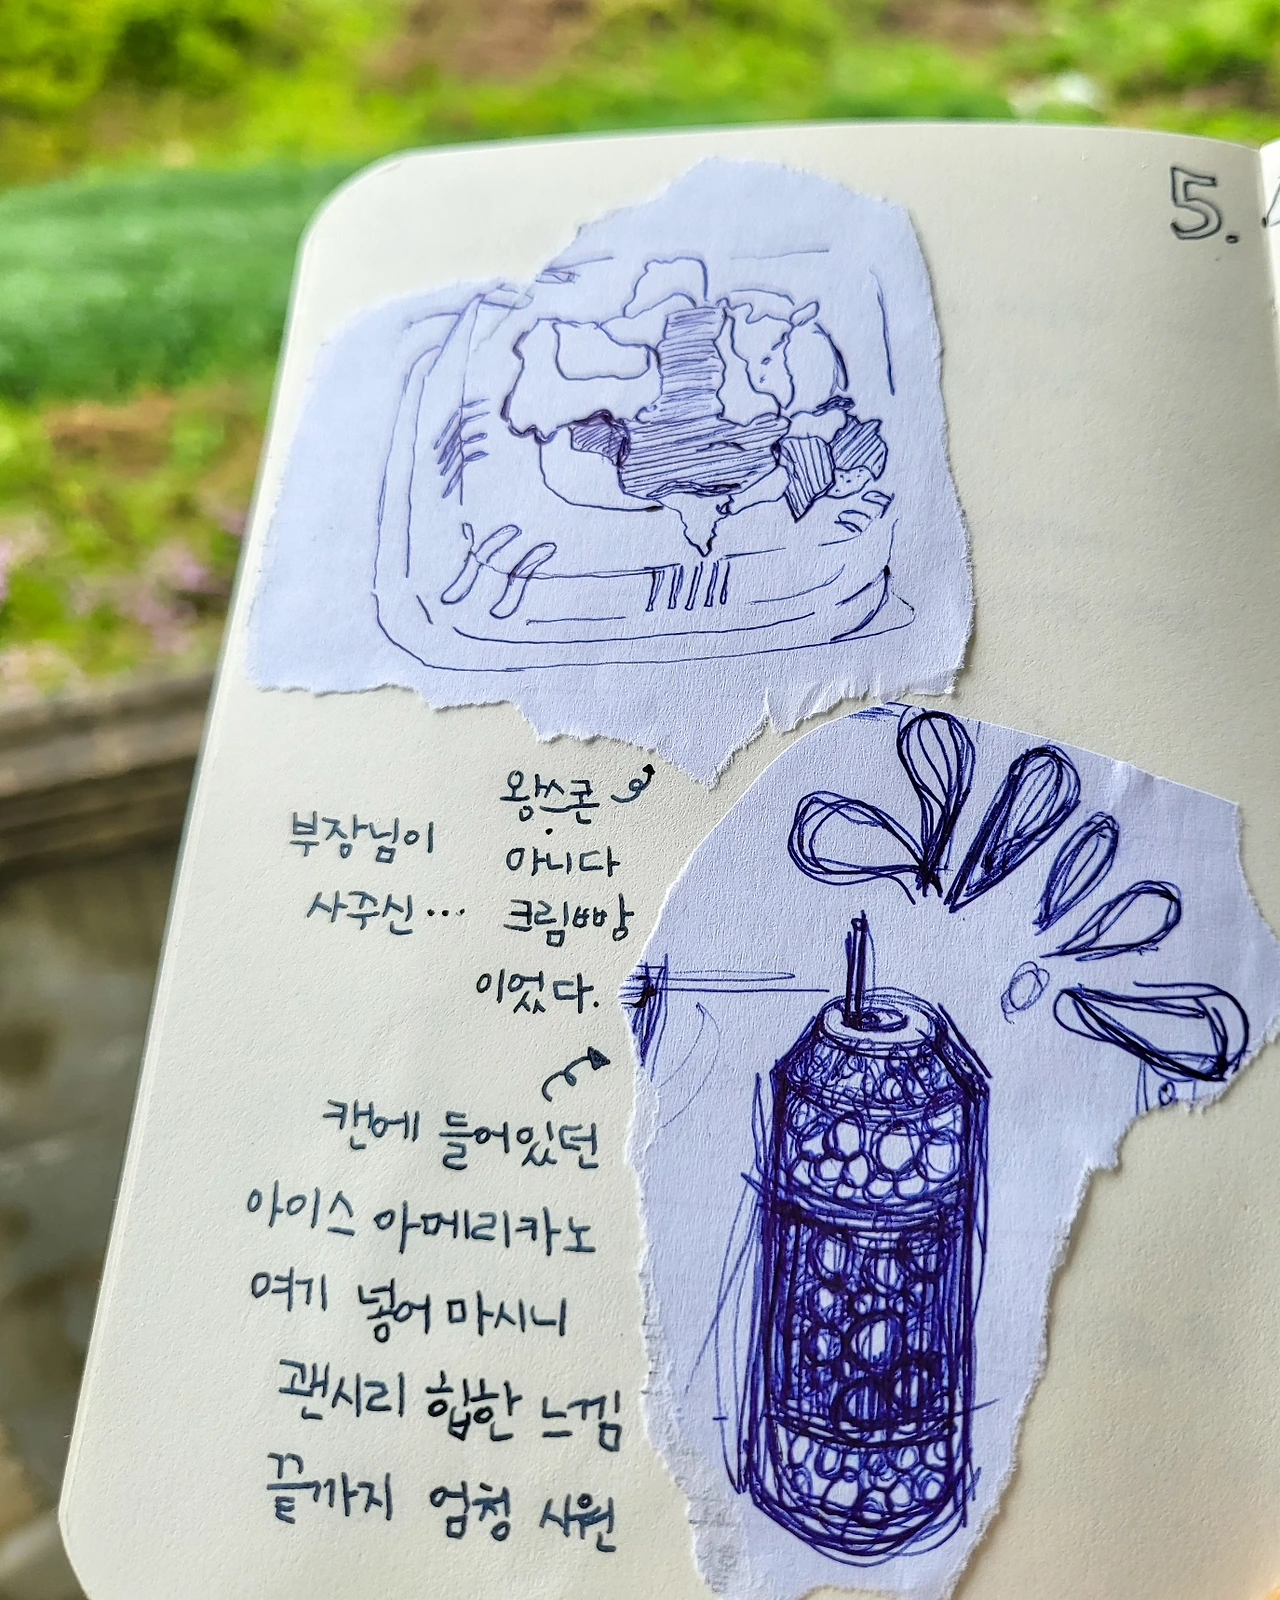 5.
왕스콘
부장님이 아니다
사주신... 크림빵
이었다.
캔에 들어있던
아이스 아메리카노
여기 넣어 마시니
괜시리 힙한 느낌
끝까지 엄청 시원